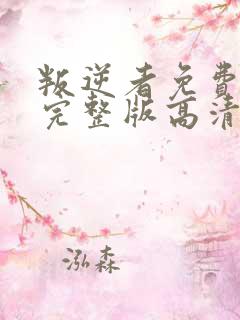 叛逆者免费
完整版高清
泓森